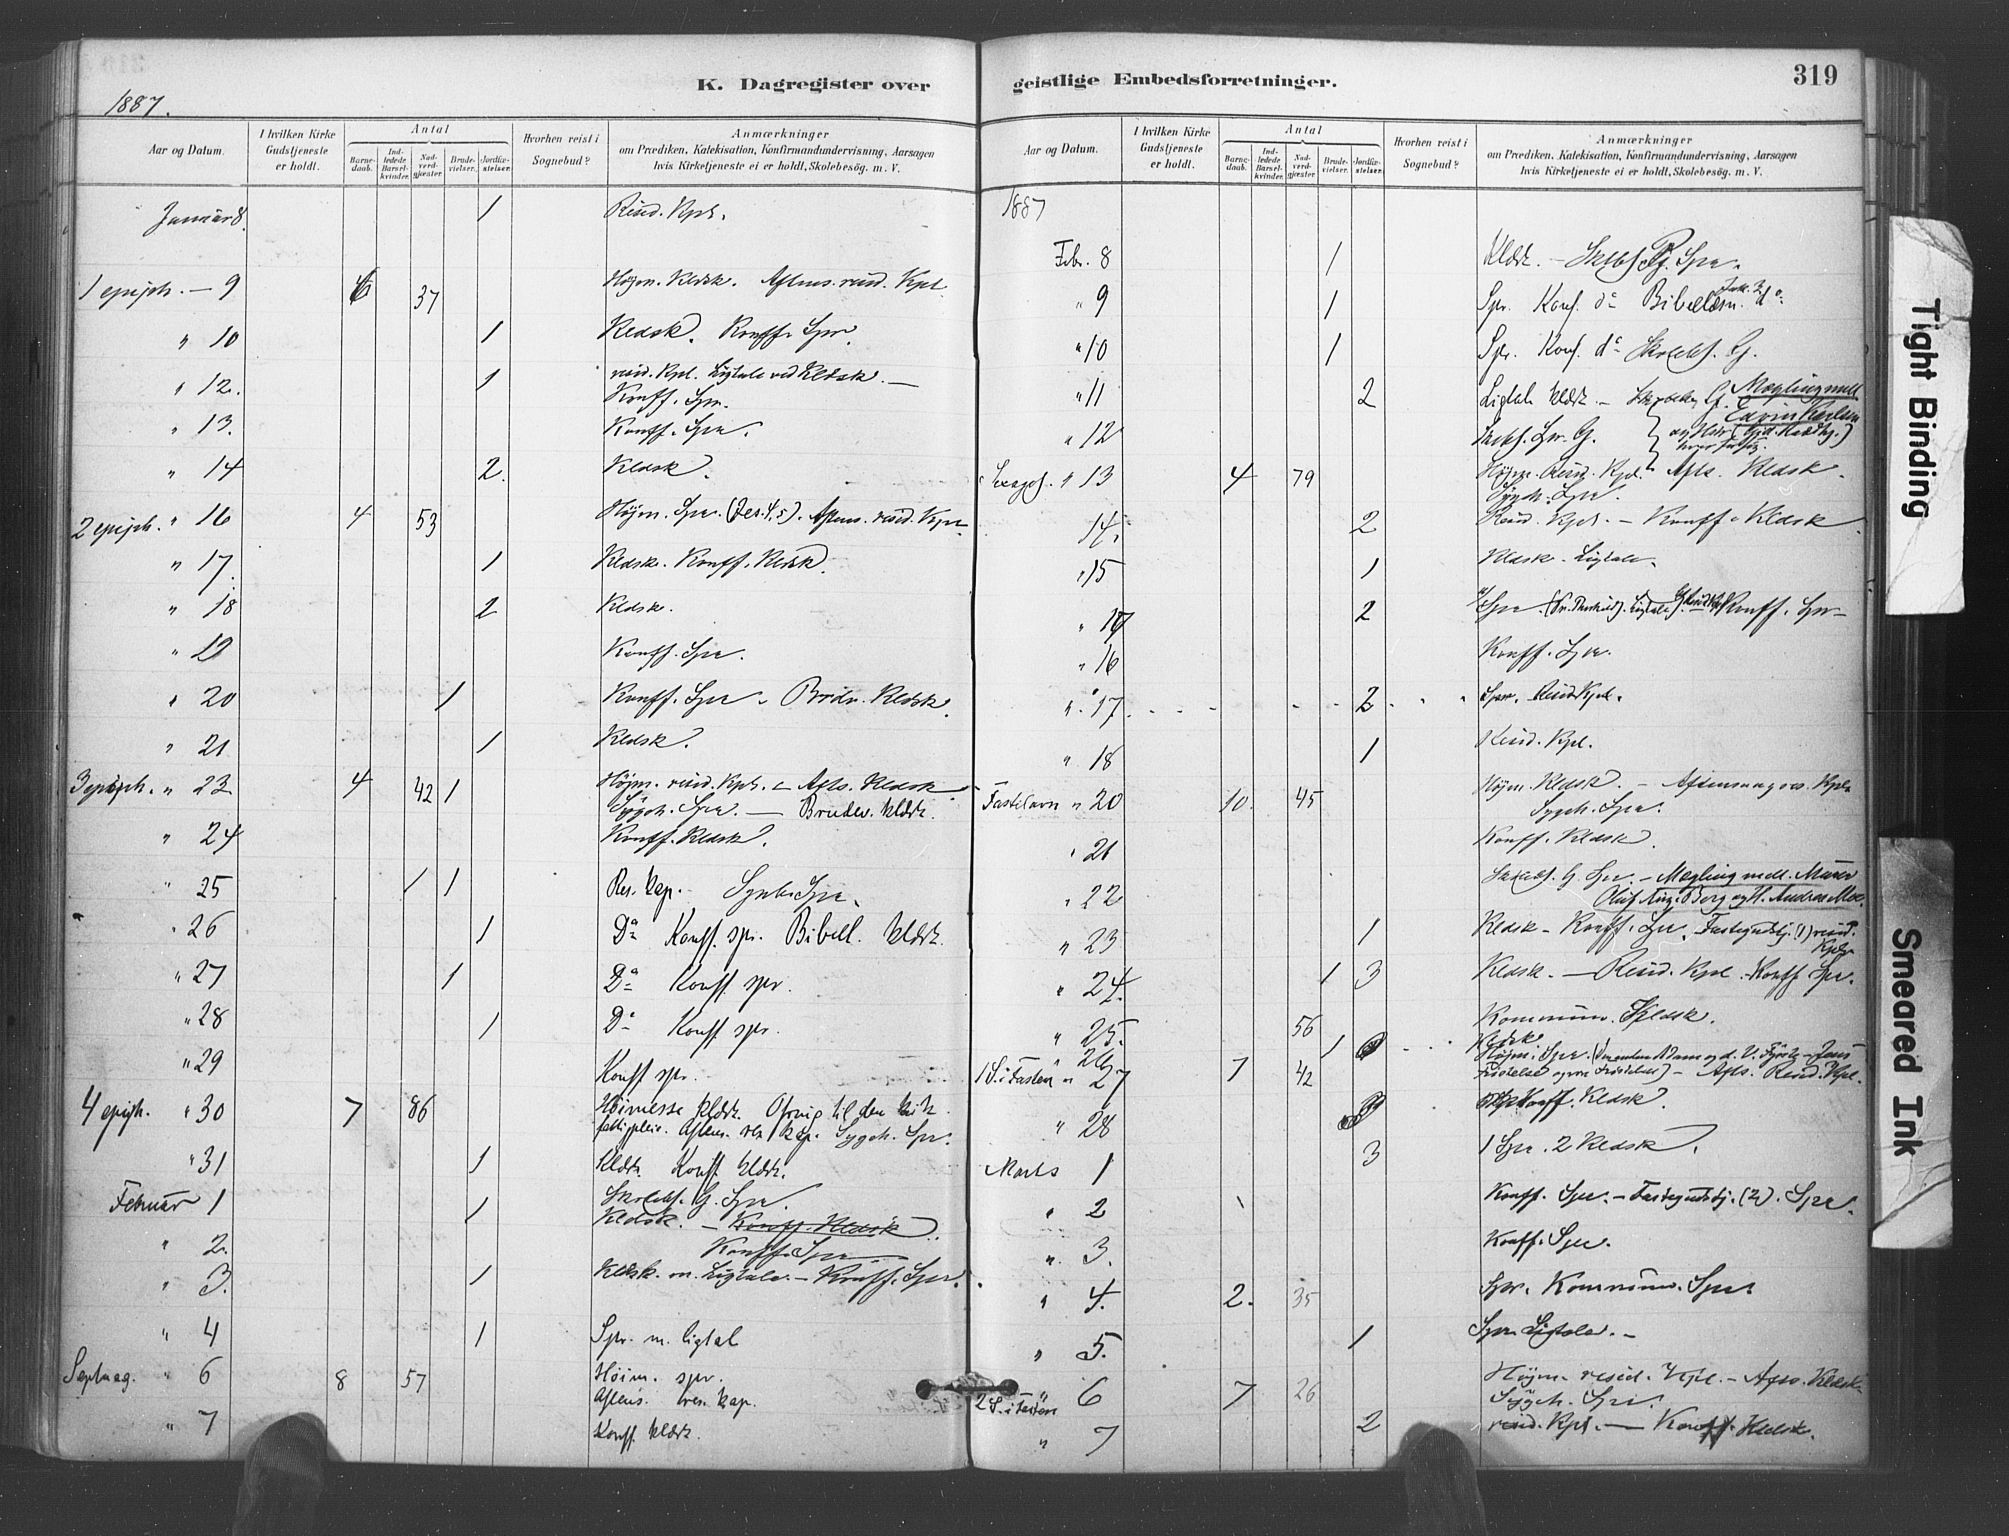 K. Dagregister over
1887.
Aar og Datum.
I hvilken Kirke Gudstjeneste er holdt.
Antal
Barnedaab.
Indledede Barselkvinder.
Nadverdgjæster.
Brudevielser.
Jordfæstelser.
Hvorhen reist i Sognebud?
Anmærkninger
om Prædiken, Katekisation, Konfirmandundervisning, Aarsagen
hvis Kirketjeneste ei er holdt, Skolebesøg. m. V.
Januar 8. 1 Resid. Kpl.
1 epiph. — 9 6 37 Höjm. Kldsk. Aftens. resid. Kpl.
" 10 1 Kldsk. Konff. Spr.
" 12. 1 resid. Kpl. Ligtale ved Kldsk. —
Konff. Spr.
" 13. Konff. Spr.
" 14 2. Kldsk.
2 epiph. " 16 4 53 Höjm. Spr. Aftens. resid. Kpl.
" 17. 1 Kldsk. Konff. Kldsk.
" 18 2 Kldsk.
" 19 Konff. Spr.
" 20 1 Konff. Spr. Brudv. Kldsk.
" 21 1 Kldsk.
3 epiph. " 23 4 42 1 Höjm. resid. Kpl. — Afts. Kldsk.
Sygeh. Spr. — Brudev. kldsk.
" 24 Konff. Kldsk.
" 25 1 1 Res. kap. Spr.
" 26 1 Do Konff. spr. Bibell. kldsk.
" 27 1 Do Konff. spr.
" 28 1 Do Konff. spr.
" 29 Konff spr.
4 epiph. " 30 7 86 Høimesse kldsk. Ofring til den kirk.
fattigpleie. Aftens. res. kap. Sygeh. Spr.
" 31 1 Kldsk. Konff. kldsk.
Februar 1 1 Skolebs. G. Spr.
Kldsk. — Konff. Kldsk.
" 2. Konff. Spr
" 3. 1 Kldsk. m. Ligtale. — Konff. Spr.
" 4 1 Spr. m. ligtal
Septuag. " 6 8 57 Høim. spr.
Aftens. res. kap.
" 7 Konff. kldsk.
geistlige Embedsforretninger.
319
Aar og Datum.
I hvilken Kirke Gudstjeneste er holdt.
Antal
Barnedaab.
Indledede Barselkvinder.
Nadverdgjæster.
Brudevielser.
Jordfæstelser.
Hvorhen reist i Sognebud?
Anmærkninger
om Prædiken, Katekisation, Konfirmandundervisning, Aarsagen
hvis Kirketjeneste ei er holdt, Skolebesøg. m. V.
1887
Febr. 8 1 Kldsk. — Spr.
" 9 1 Spr. Konf. do Bibellæsn. do
" 10 1 Spr. Konf. do Skolebs. G.
" 11 2 Ligtale kldsk. — G. Mægling mell.
" 12 Skolebs. Spr. G.
Sexages. " 13 4 79 Höjm. Resid. Kpl. Afts. Kldsk.
Sygeh. Spr.
14. 2 Resid. Kpl. — Konff. Kldsk
" 15 1 Kldsk. Ligtale.
" 17 2 Spr. Ligtale Konff. Spr
" 16 Konff. Spr.
" 17. 2 Spr. Resid Kpl.
" 18 1 Resid. Kpl.
Fastelavn " 20 10. 45 Höjm. Kldsk. — Aftensang res. Kpl.
Sygeh. Spr.
" 21 Konff. Kldsk.
" 22 Skolebs. G. Spr. — Mægling mell. Murer
Oluf Aug. Berg og H. Andrea Moe.
" 23 1 Kldsk — Konff. Spr. Fastegudstj. (1) resid.
Kpl.
" 24. 1 3 Kldsk. — Resid. Kpl. Konff Spr.
" 25. 56 Kommunion. Kldsk.
" 26 1 Kldsk.
1 S. i Fasten " 27 7 42 Höjm. Spr. — Afts. Resid. Kpl.
" 28 Konff. Kldsk.
Marts 1 3 1 Spr. 2 Kldsk.
" 2 Konff. Spr. — Fastegudstj. (2). Spr.
" 3. Konff. Spr.
" 4. 2. 35 Spr. Kommunion. Spr.
" 5. 1 Spr. Ligtale. —
2 S. i Fasten 6 7 26 Höjm. resid. Kpl. — Afts. Kldsk.
Sygeh. Spr.
" 7 2 resid. Kpl. — Konff. Kldsk.
Tight Binding
Smeared Ink